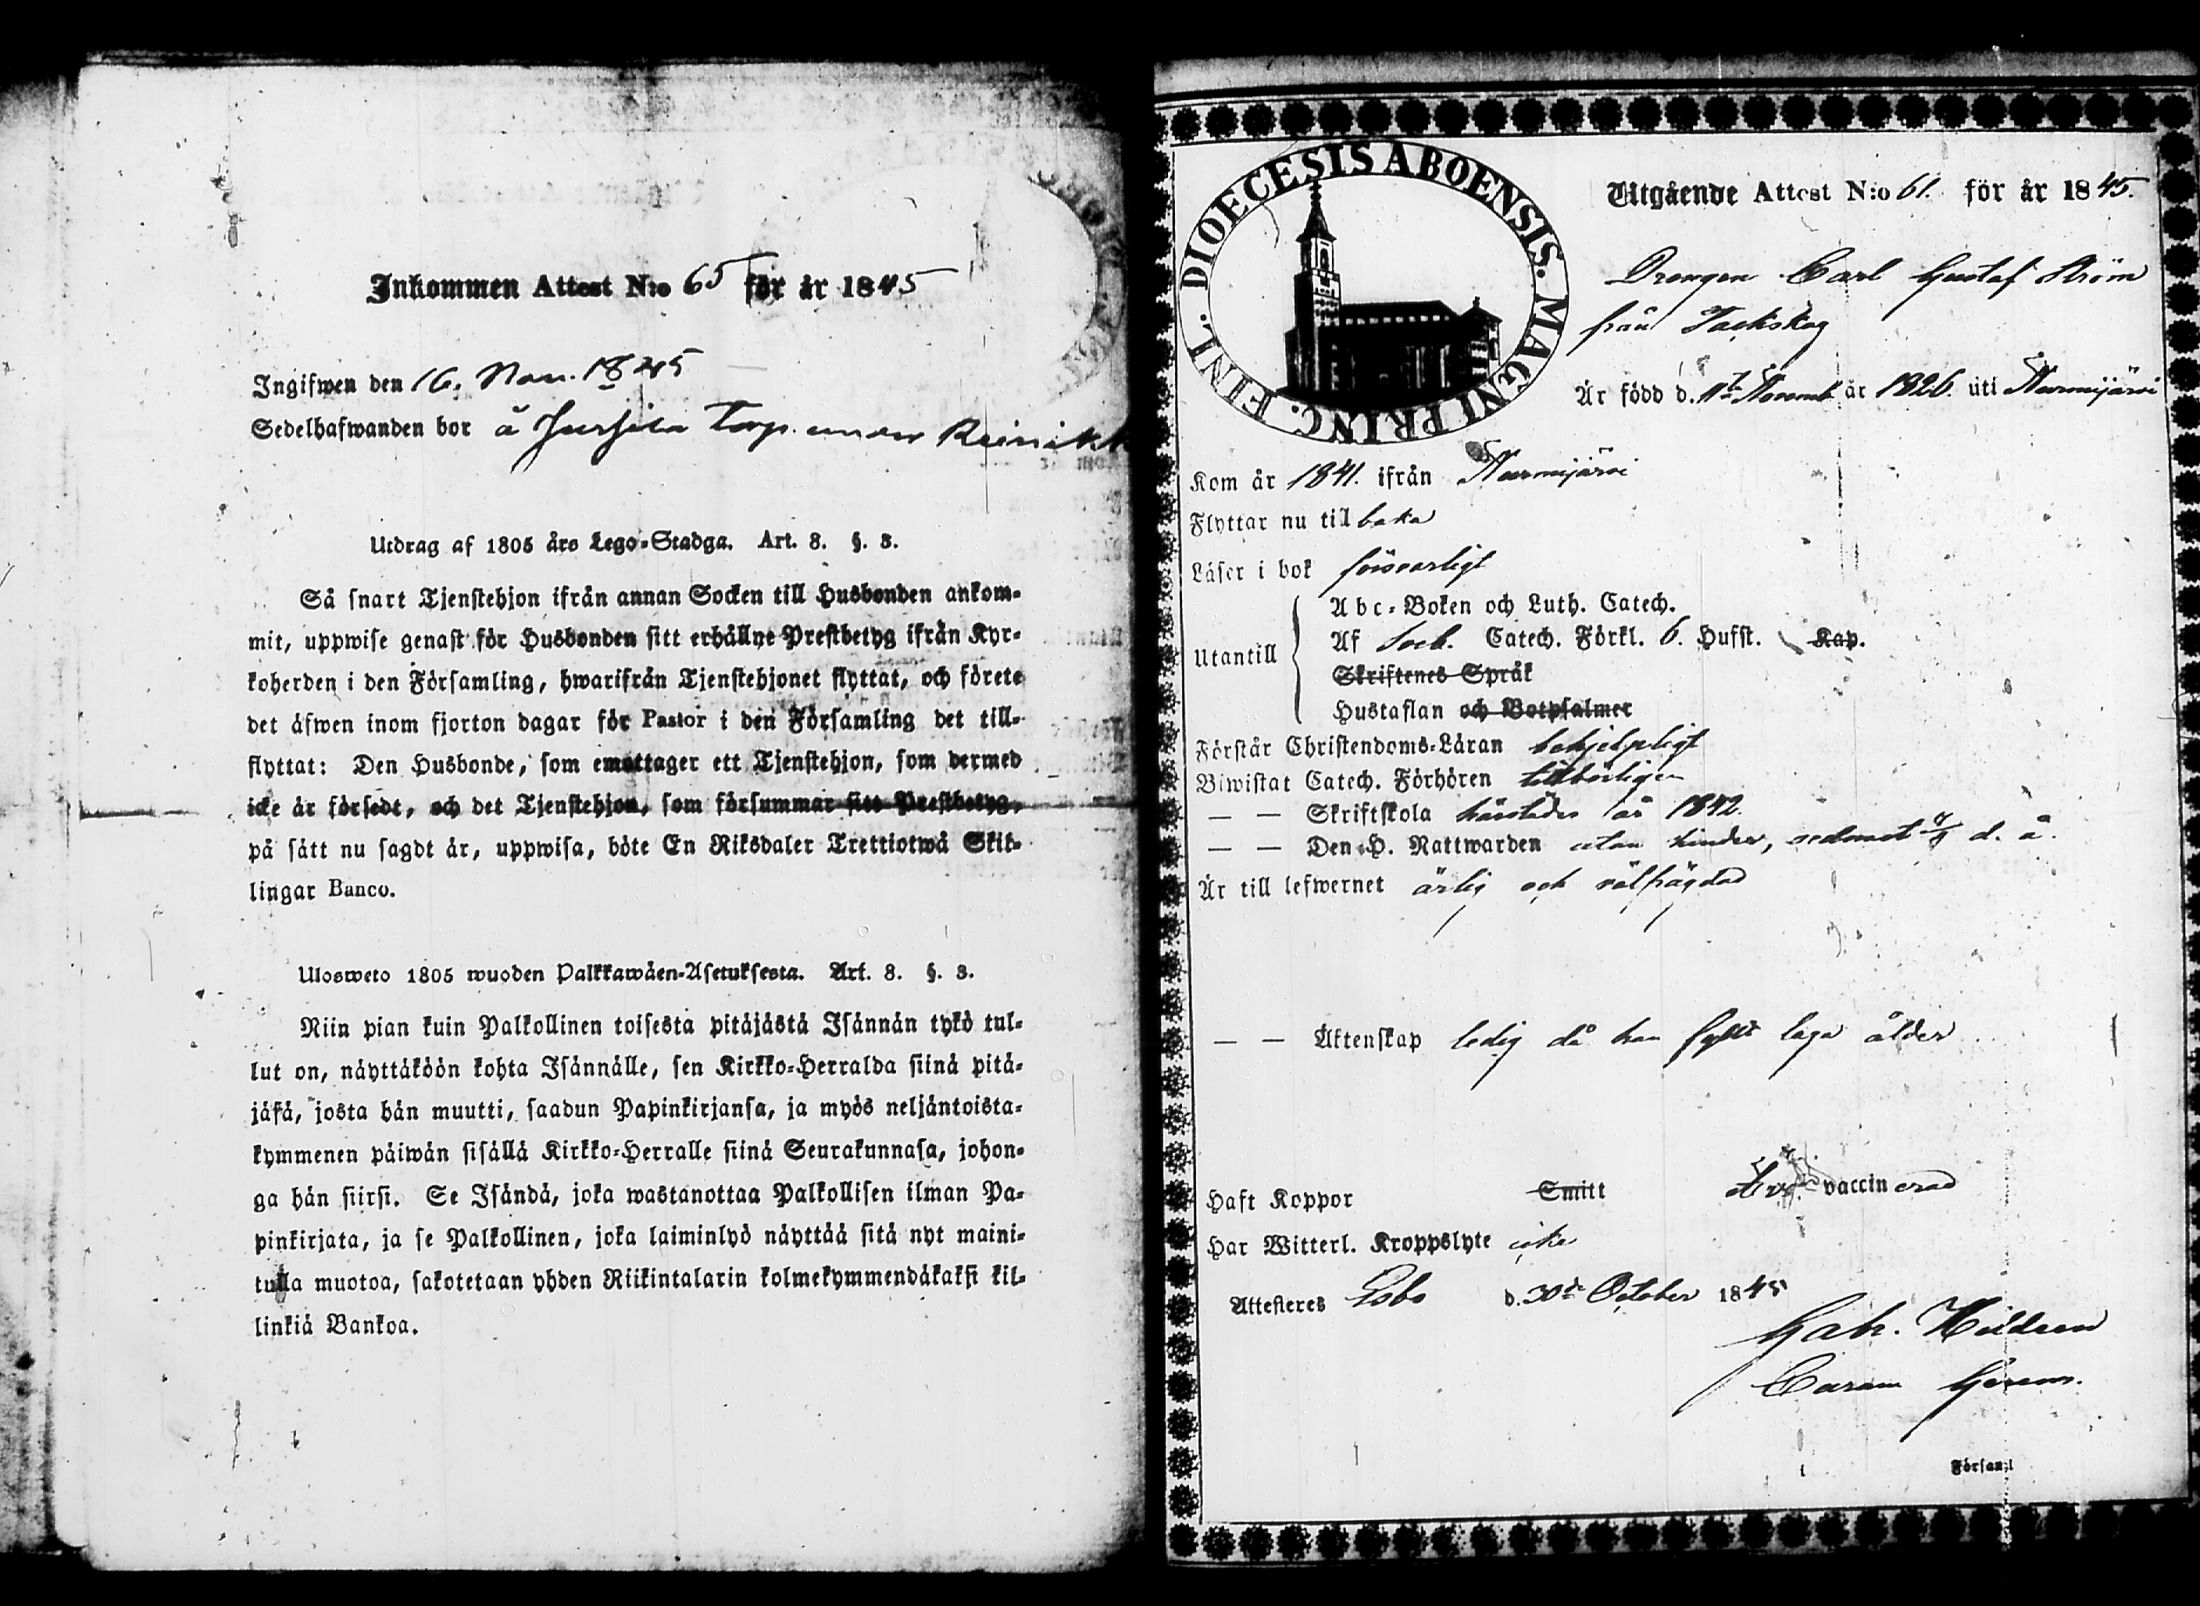 Inkommen Attest N:o 65 för år 1845
Ingifwen den 16. Nov. 1845
Sedelhafwanden bor å Torp. under
Utdrag af 1805 års Lego-Stadga. Art. 8. §. 3.
Så snart Tjenstehjon ifrån annan Socken till Husbonden ankom-
mit, uppwise genast för Husbonden sitt erhållne Prestbetyg ifrån Kyr-
koherden i den Församling, hwarifrån Tjenstehjonet flyttat, och förete
det äfwen inom fjorton dagar för Pastor i den Församling det till-
flyttat: Den Husbonde, som emottager ett Tjenstehjon, som dermed
icke är försedt, och det Tjenstehjon, som försummar sitt Prestbetyg,
på sätt nu sagdt är, uppwisa, böte En Riksdaler Trettiotwå Skil-
lingar Banco.
Ulosweto 1805 wuoden Palkkawäen-Asetuksesta. Art. 8. §. 3.
Niin pian kuin Palkollinen toisesta pitäjästä Isännän tykö tul-
lut on, näyttäköön kohta Isännälle, sen Kirkko-Herralda siinä pitä-
jäsä, josta hän muutti, saadun Papinkirjansa, ja myös neljäntoista-
kymmenen päiwän sisällä Kirkko-Herralle siinä Seurakunnasa, johon-
ga hän siirsi. Se Isändä, joka wastanottaa Palkollisen ilman Pa-
pinkirjata, ja se Palkollinen, joka laiminlyö näyttää sitä nyt maini-
tulla muotoa, sakotetaan yhden Riikintalarin kolmekymmendäkaksi kil-
linkiä Bankoa.
DIOECESIS ABOENSIS. MAGNI PRINC. FINL.
Utgående Attest N:o 61. för år 1845.
Drengen Carl Gustaf Ström
från Tackskog
Är född d. 1te Novemb år 1826. uti Nurmijärvi
Kom år 1841. ifrån Nurmijärvi
Flyttar nu tillbaka
Läser i bok försvarligt
Utantill
Abc-Boken och Luth. Catech.
Af Sveb. Catech. Förkl. 6. Hufst. Kap.
Skriftenes Språk
Hustaflan och Botpsalmer
Förstår Christendoms-Läran behjelpligt
Biwistat Catech. Förhören tillbörligen
— — Skriftskola härstädes år 1842.
— — Den H. Nattwarden utan hinder, sednast d. å.
Är till lefwernet ärlig och välfrägdad
— — Äktenskap ledig då han fyllt laga ålder
Haft Koppor Smitt vaccinerad
Har Witterl. Kroppslyte icke
Attesteres Esbo d. 30de October 1845
Gab. Hildeen
Församl